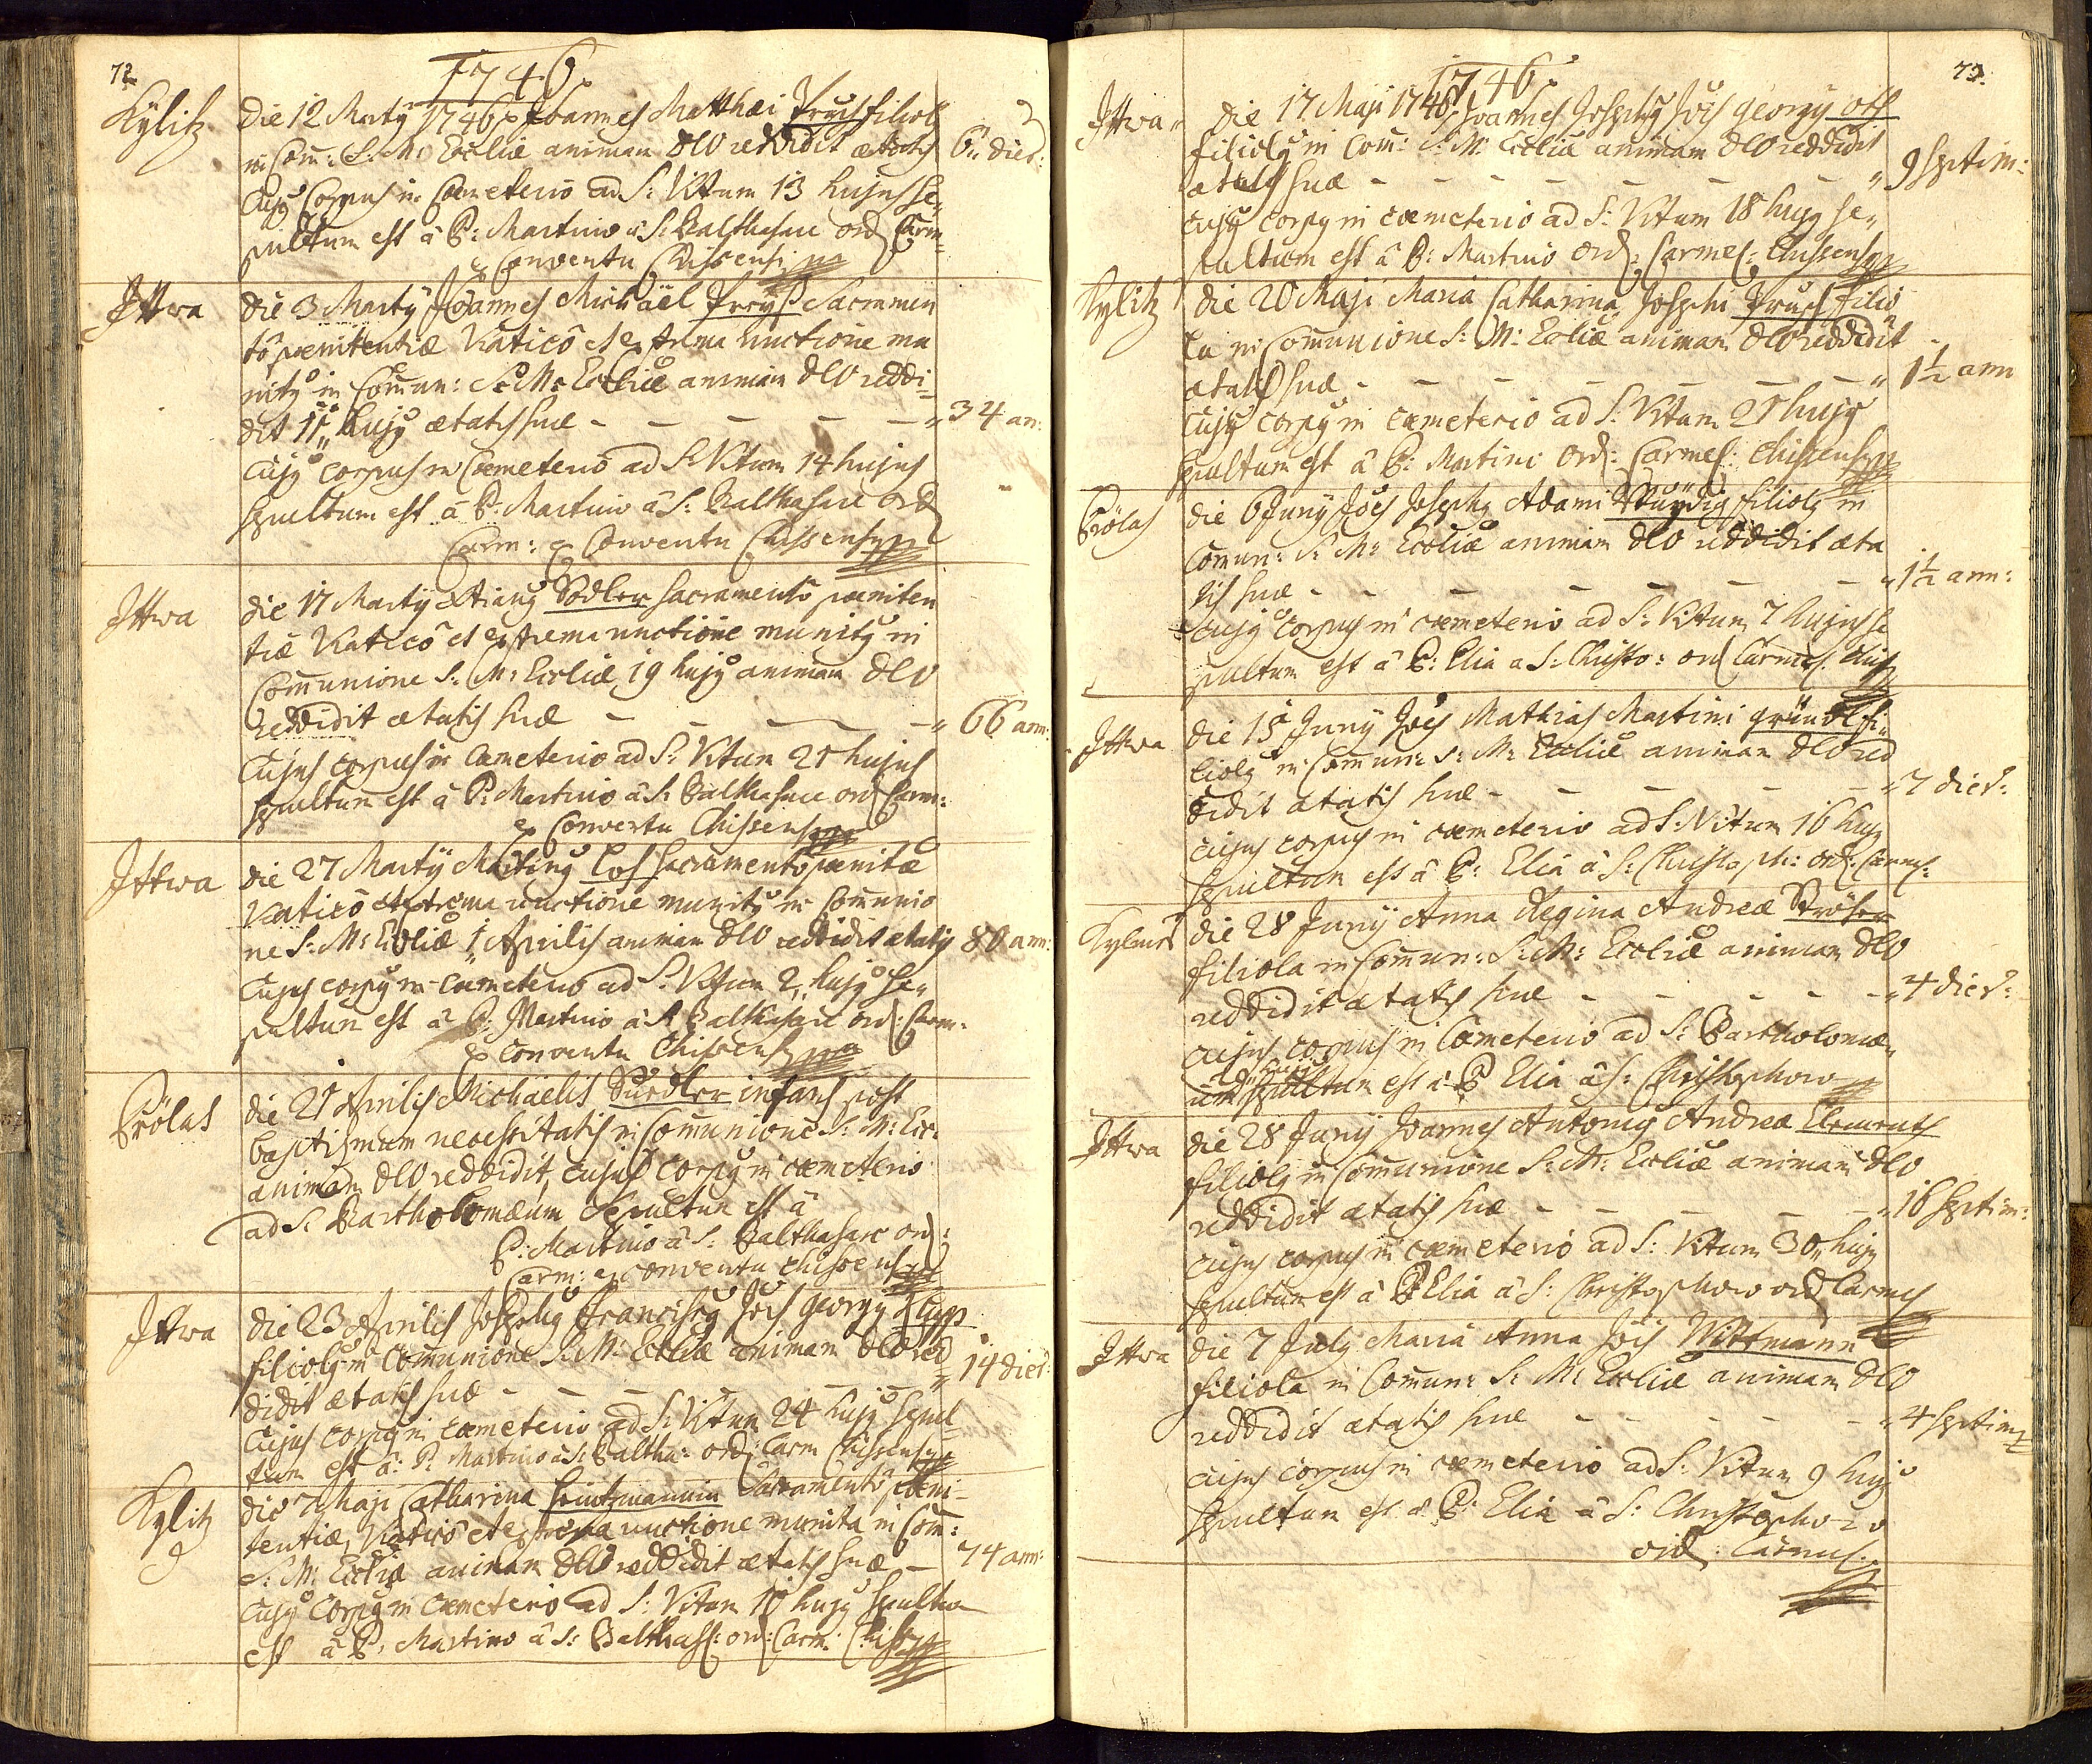 72
1746
Kylitz
Die 12 Martÿ 1746 Joannes Matthæi Prusch filiolq
in Com: S: M: Eccliæ animam DEO reddidit ætatis
6 dies:
Cujq Corpus in Coemeterio ad S: Vitum 13 hujus se„
pultum est à P: Martino à S: Balthasare ord Carm
ex Conventu Chissensi
Ittwa
die 3 Martÿ Joannes Michäel Preyß Sacramen
tô pœnitentiæ Viaticô et extrema unctione mu
nitq in Comun: S: M: Eccliæ animam DEO reddi-
dit 11 hujq ætatis suæ - - - - - „
34 an:
Cujq corpus in Coemeterio ad S: Vitum 14 hujus
sepultum est à P: Martino à S: Balthasare ord
Carm: ex Conventu Chissensi
Ittwa
die 17 Martÿ Sodler sacramentô pœniten
tiæ Viaticô et extrema unctione munitq in
Communione S: M: Eccliæ 19 hujq animam DEO
reddidit ætatis suæ - - - - „
66 ann:
Cujus corpus in Coemeterio ad S: Vitum 21 hujus
sepultum est à P: Martino à S: Balthasare ord Carm:
ex Conventu Chissensi
Ittwa
die 27 Martÿ Martinq Los sacramentô pœnitæ
Viaticô et extrema unctione munitq in Communio
ne S: M: Eccliæ 1 Aprilis animam DEO reddidit ætatis
80 ann:
Cujus corpq in Coemeterio ad S: Vitum 2 hujq se„
pultum est à P: Martino à S: Balthasare ord: Carm.
ex Conventu Chissensi
Prölas
die 21 Aprilis Michäelis Suedler infans post
baptismum necessitatis in Communione S: M: Ecc:
animam DEO reddidit, cujus corpq in coemeterio
ad S: Bartholomæum Sepultum est à
P: Martino à S: Balthasare ord:
Carm: ex conventu Chissensi
Ittwa
die 23 Aprilis Josephq Franciscq Jois Georgÿ
filiolq in Communione S: M: Eccliæ animam DEO red
didit ætatis suæ - - - - - „
14 dies:
Cujus corpq in coemeterio ad S: Vitum 24 hujq sepul
tum est à: P: Martino à S: Baltha: ord: Carm Chissensi
Kylitz
die 7 Maji Catharina Heintzmannin Sacramentô pœni-
tentiæ, Viaticô et extrema unctione munita in Com:
S: M: Eccliæ animam DEO reddidit ætatis suæ -
74 ann:
Cujq Corpq in Coemeterio ad S: Vitum 10 hujq sepultum
est à P. Martino à S: Balthas: ord: Carm: Chiss
73.
1746
Ittwa
die 17 Maji 1746 Joannes Josephq Jois Georgÿ Ott
filiolq in Com: S: M: Eccliæ animam DEO reddidit
ætatis suæ - - - - - - - „
9 septim:
cujq corpq in coemeterio ad S: Vitum 18 hujq se„
pultum est à P: Martino Ord: Carmel: Chissensi
Kylitz
die 20 Maji Maria Catharina Josephi Prusch filio
la in Comunione S: M: Eccliæ animam DEO reddidit
ætatis suæ - - - - - - - „
1½ ann
cujq corpq in coemeterio ad S: Vitum 21 hujq
sepultum est à P: Martini Ord: Carmel: Chissensi
Prölas
die 6 Junÿ Jois Josephq Adami filiolq in
Comun: S: M: Eccliæ animam DEO reddidit æta
tis suæ - - - - - - „
1½ ann:
cujq corpus in coemeterio ad S: Vitum 7 hujus se
pultum est à P: Elia a S: Christo: ord Carmel. Chiss
Ittwa
die 15 Junÿ Jois Mathias Martini Gründl fi„
liolq in Comun: S: M: Eccliæ animam DEO red
didit ætatis suæ - - - - - „
7 dies:
cujus corpus in coemeterio ad S: Vitum 16 hujq
sepultum est à P: Elia à S: Christoph: ord: Carmel:
die 28 Junÿ Anna Regina Andreæ Ströher
filiola in Comun: S: M: Eccliæ animam DEO
reddidit ætatis suæ - - - - - „
4 dies:
cujus corpus in Coemeterio ad S: Bartholomæ„
um sepultum est à P Elia à S: Christophoro
Ittwa
die 28 Junÿ Joannes Antonius Andreæ Clements
filiolq in Communione S: M: Eccliæ animam DEO
reddidit ætatis suæ - - - - - „
16 septim:
cujus corpus in coemeterio ad S: Vitum 30 hujq
sepultum est à P Elia à S: Christophoro ord Carmel
Ittwa
die 7 July Maria Anna Jois Wittmann
filiola in Comun: S: M: Eccliæ animam DEO
reddidit ætatis suæ - - - - - „
4 septim
cujus corpus in coemeterio ad S: Vitum 9 hujq
sepultum est à P: Elia à S: Christophoro
ord: Carmel: